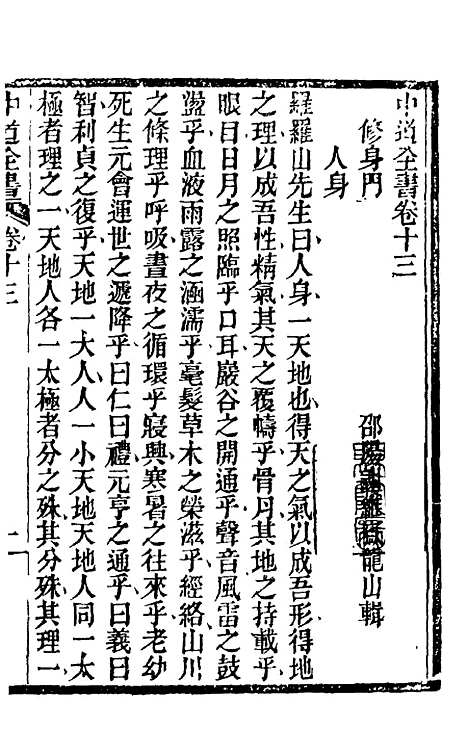 中道全書卷十三
修身門
邵陽 龍山輯
人身
羅羅山先生曰人身一天地也得天之氣以成吾形得地
之理以成吾性精氣其天之覆幬乎骨月其地之持載乎
眼目日月之照臨乎口耳巖谷之開通乎聲音風雷之鼓
盪乎血液雨露之涵濡乎毫髮草木之榮滋乎經絡山川
之條理乎呼吸晝夜之循環乎寢興寒暑之往來乎老幼
死生元會運世之遞降乎曰仁曰禮元亨之通乎義曰
智利貞之復乎天地一大人人一小天地天地人同一太
極者理之一天地人各一太極者分之殊其分殊其理一
中道全書 卷十三 一